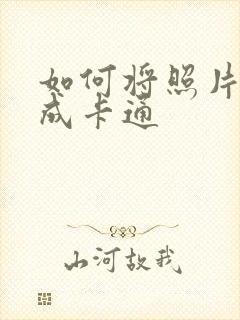 如何将照片
成卡通
山河故我